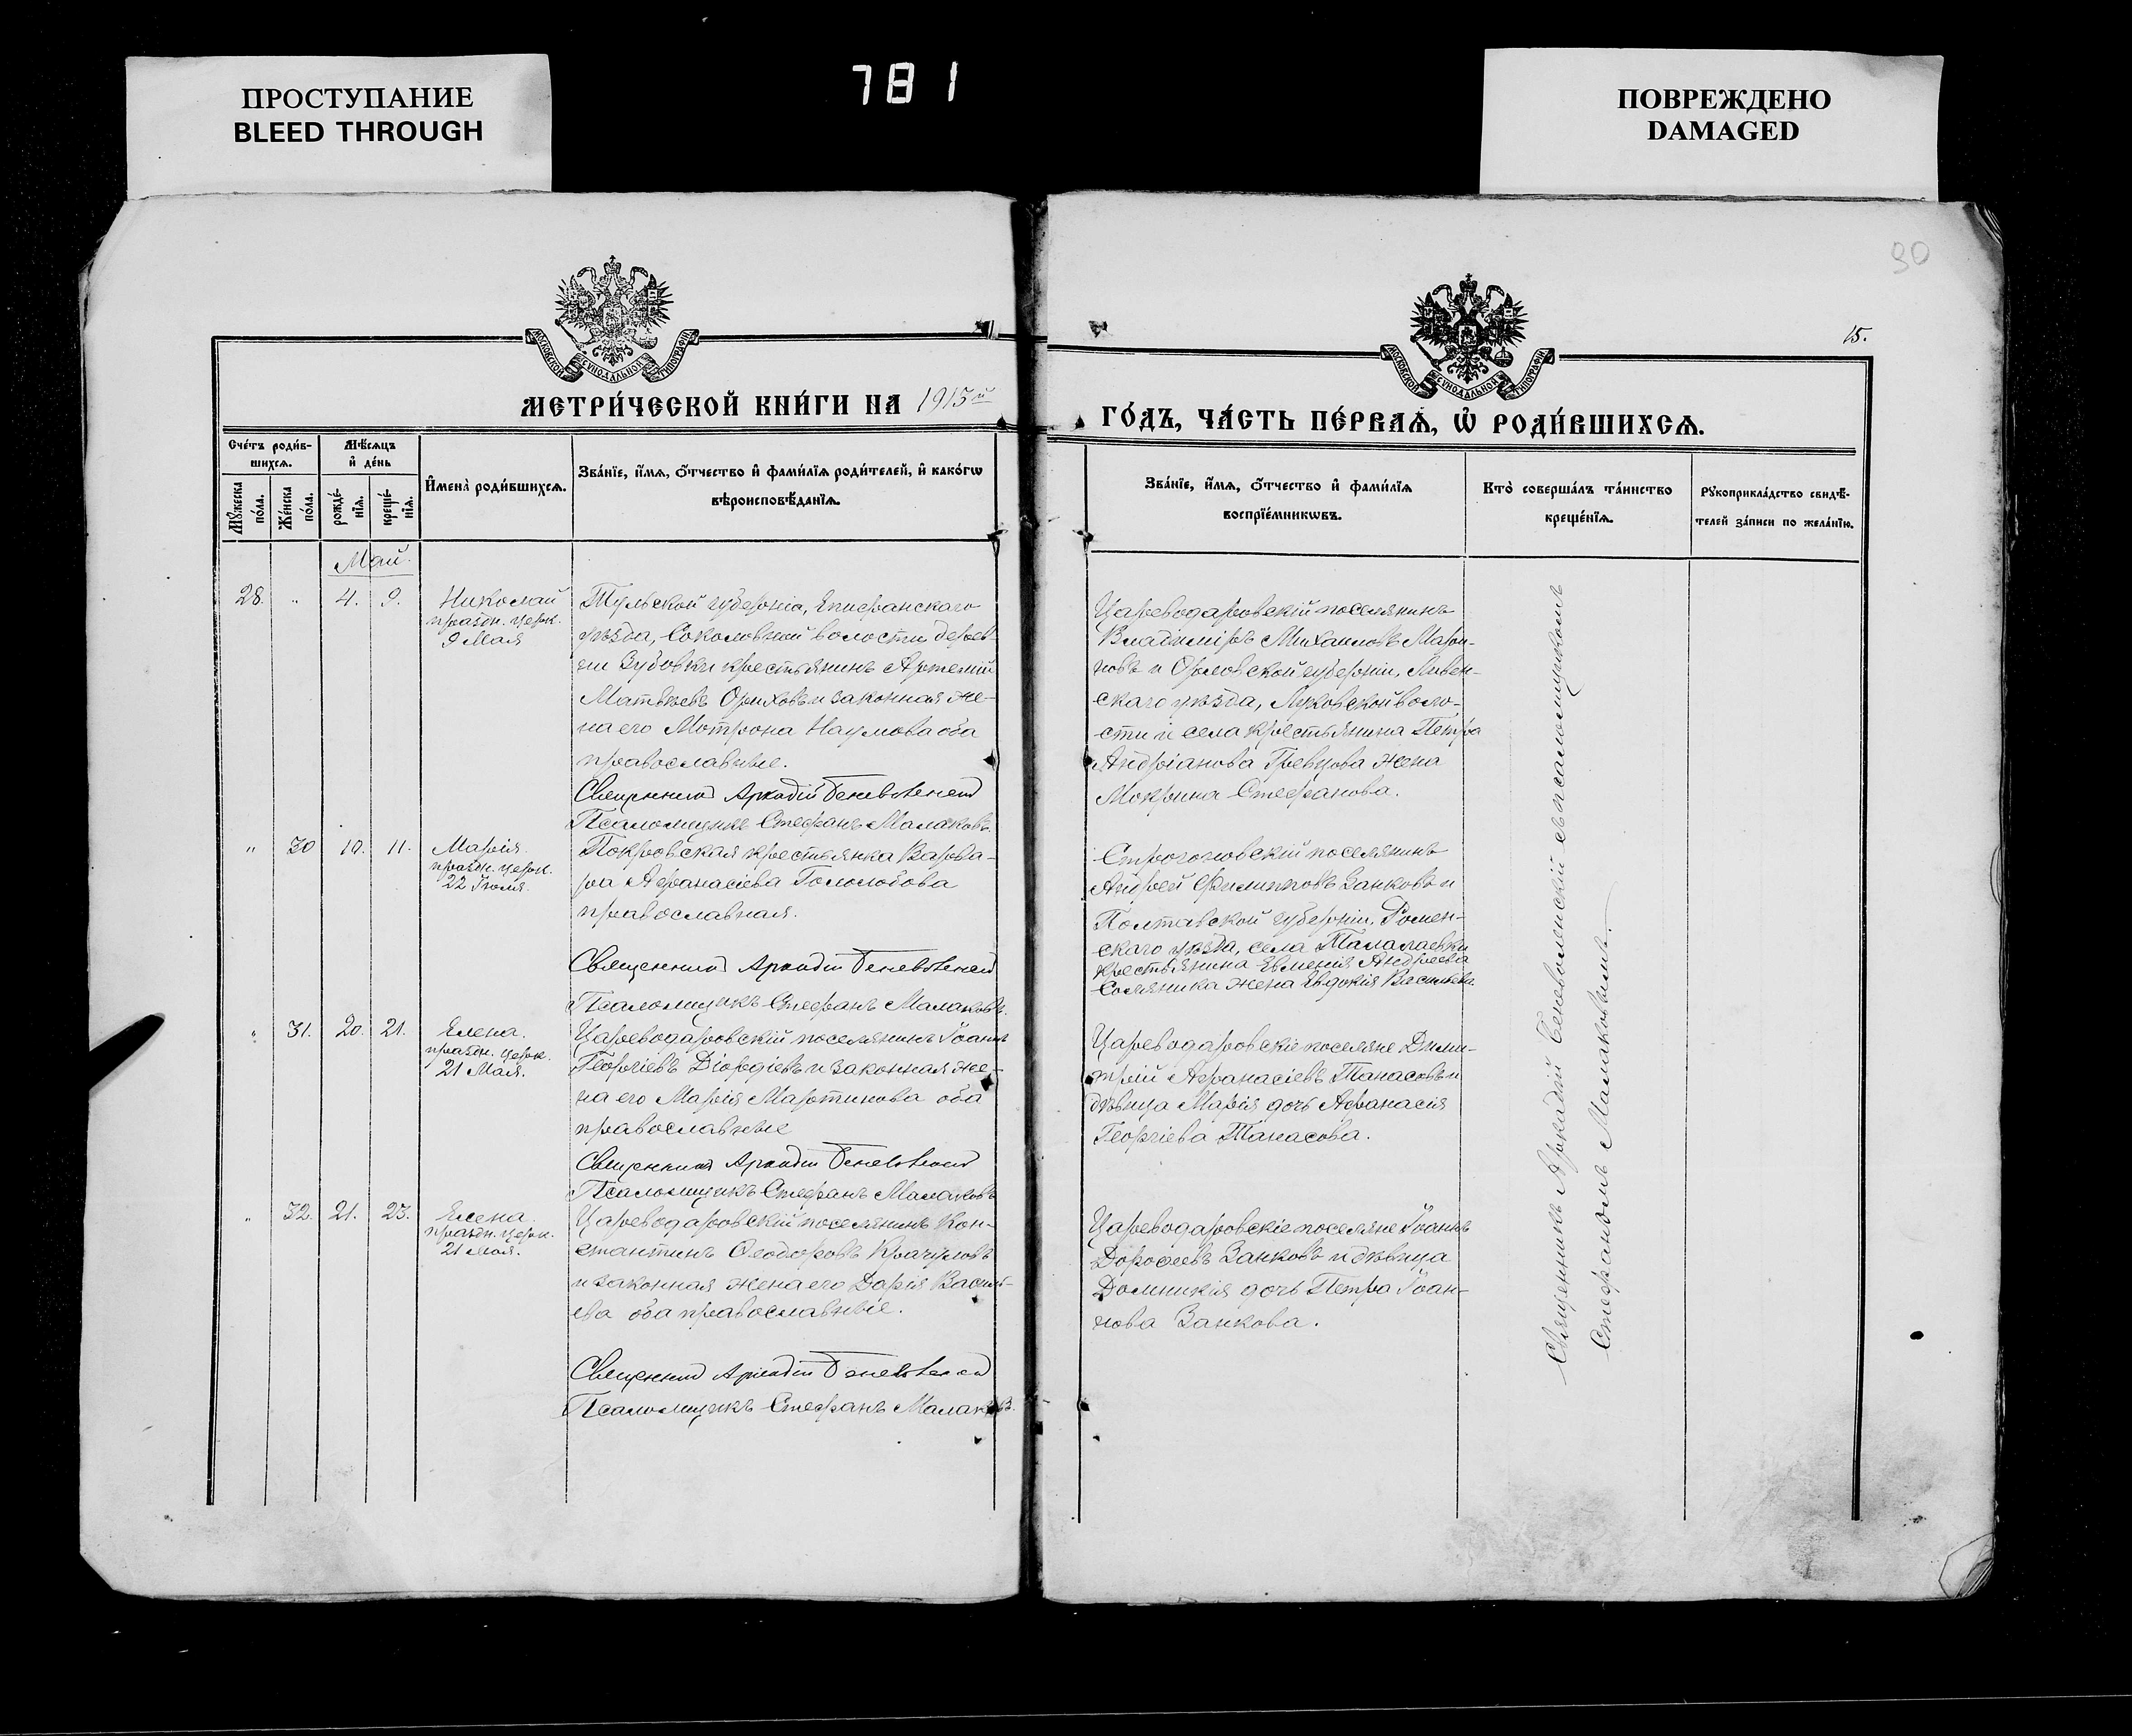 ПРОСТУПАНИЕ
BLEED THROUGH
781
ПОВРЕЖДЕНО
DAMAGED
90
15.
МОСКОВСКОЙ СѴНОДАЛЬНОЙ ТИПОГРАФІИ
МОСКОВСКОЙ СѴНОДАЛЬНОЙ ТИПОГРАФІИ
МЕТРИ́ЧЕСКОЙ КНИ́ГИ НА 1915й
ГО́ДЪ, ЧА́СТЬ ПЕ́РВАѦ, Ѡ҆ РОДИ́ВШИХСѦ.
Сче́тъ роди́в-
шихсѧ.
Мѣ́сѧцъ
и҆ де́нь
Мꙋ́жеска
по́ла.
Же́нска
по́ла.
рожде́-
нїѧ.
креще́-
нїѧ.
И҆мена̀ роди́вшихсѧ.
Зва́нїе, и҆́мѧ, ѻ҆́тчество и҆ фами́лїѧ роди́телей, и҆ како́гѡ
вѣроисповѣ́данїѧ.
Зва́нїе, и҆́мѧ, ѻ҆́тчество и҆ фами́лїѧ
воспрїе́мникѡвъ.
Кто̀ соверша́лъ та́инство
креще́нїѧ.
Рꙋкоприкла́дство свидѣ́-
телей за́писи по жела́нїю.
Май.
28. " 4. 9.
Николай
праздн. церк.
9 Мая
Тульской губерніи, Епифанскаго
уѣзда, Соколовской волости дерев-
ни Зубовки крестьянинъ Артемій
Матвѣевъ Ориховъ и законная же-
на его Мотрона Наумова оба
православные.
Священникъ Аркадій Беневоленский
Псаломщикъ Стефанъ Малаковъ.
Цареводаровскій поселянинъ
Владиміръ Михаиловъ Мари-
новъ и Орловской губерніи, Ливен-
скаго уѣзда, Луковской воло-
сти и села крестьянина Петра
Андріанова Гревцова жена
Мокрина Стефанова.
" 30 10. 11.
Марія.
праздн. церк.
22 Іюля.
Покровская крестьянка Варва-
ра Афанасіева Гололобова
православная.
Священникъ Аркадій Беневоленский
Псаломщикъ Стефанъ Малаковъ.
Строгоновскій поселянинъ
Андрей Филипповъ Занковъ и
Полтавской губерніи, Ромен-
скаго уѣзда, села Талалаевки
крестьянина Евменія Андреева
Соляника жена Евдокія Васильева.
" 31. 20. 21.
Елена.
праздн. церк.
21 Мая.
Цареводаровскій поселянинъ Іоаннъ
Георгіевъ Діордіевъ и законная же-
на его Марія Мартинова оба
православные
Священникъ Аркадій Беневоленский
Псаломщикъ Стефанъ Малаковъ
Цареводаровскіе поселяне Дими-
трій Афанасіевъ Танасовъ и
дѣвица Марія дочь Афанасія
Георгіева Танасова.
" 32. 21. 23.
Елена.
праздн. церк.
21 Мая.
Цареводаровскій поселянинъ Кон-
стантинъ Ѳеодоровъ Крачуловъ
и законная жена его Дарія Василь-
ева оба православные.
Священникъ Аркадій Беневоленский
Псаломщикъ Стефанъ Малаковъ.
Цареводаровскіе поселяне Іоаннъ
Дороѳеевъ Занковъ и дѣвица
Домникія дочь Петра Іоан-
нова Занкова.
Священникъ Аркадій Беневоленскій съ псаломщикомъ
Стефаномъ Малаковымъ.